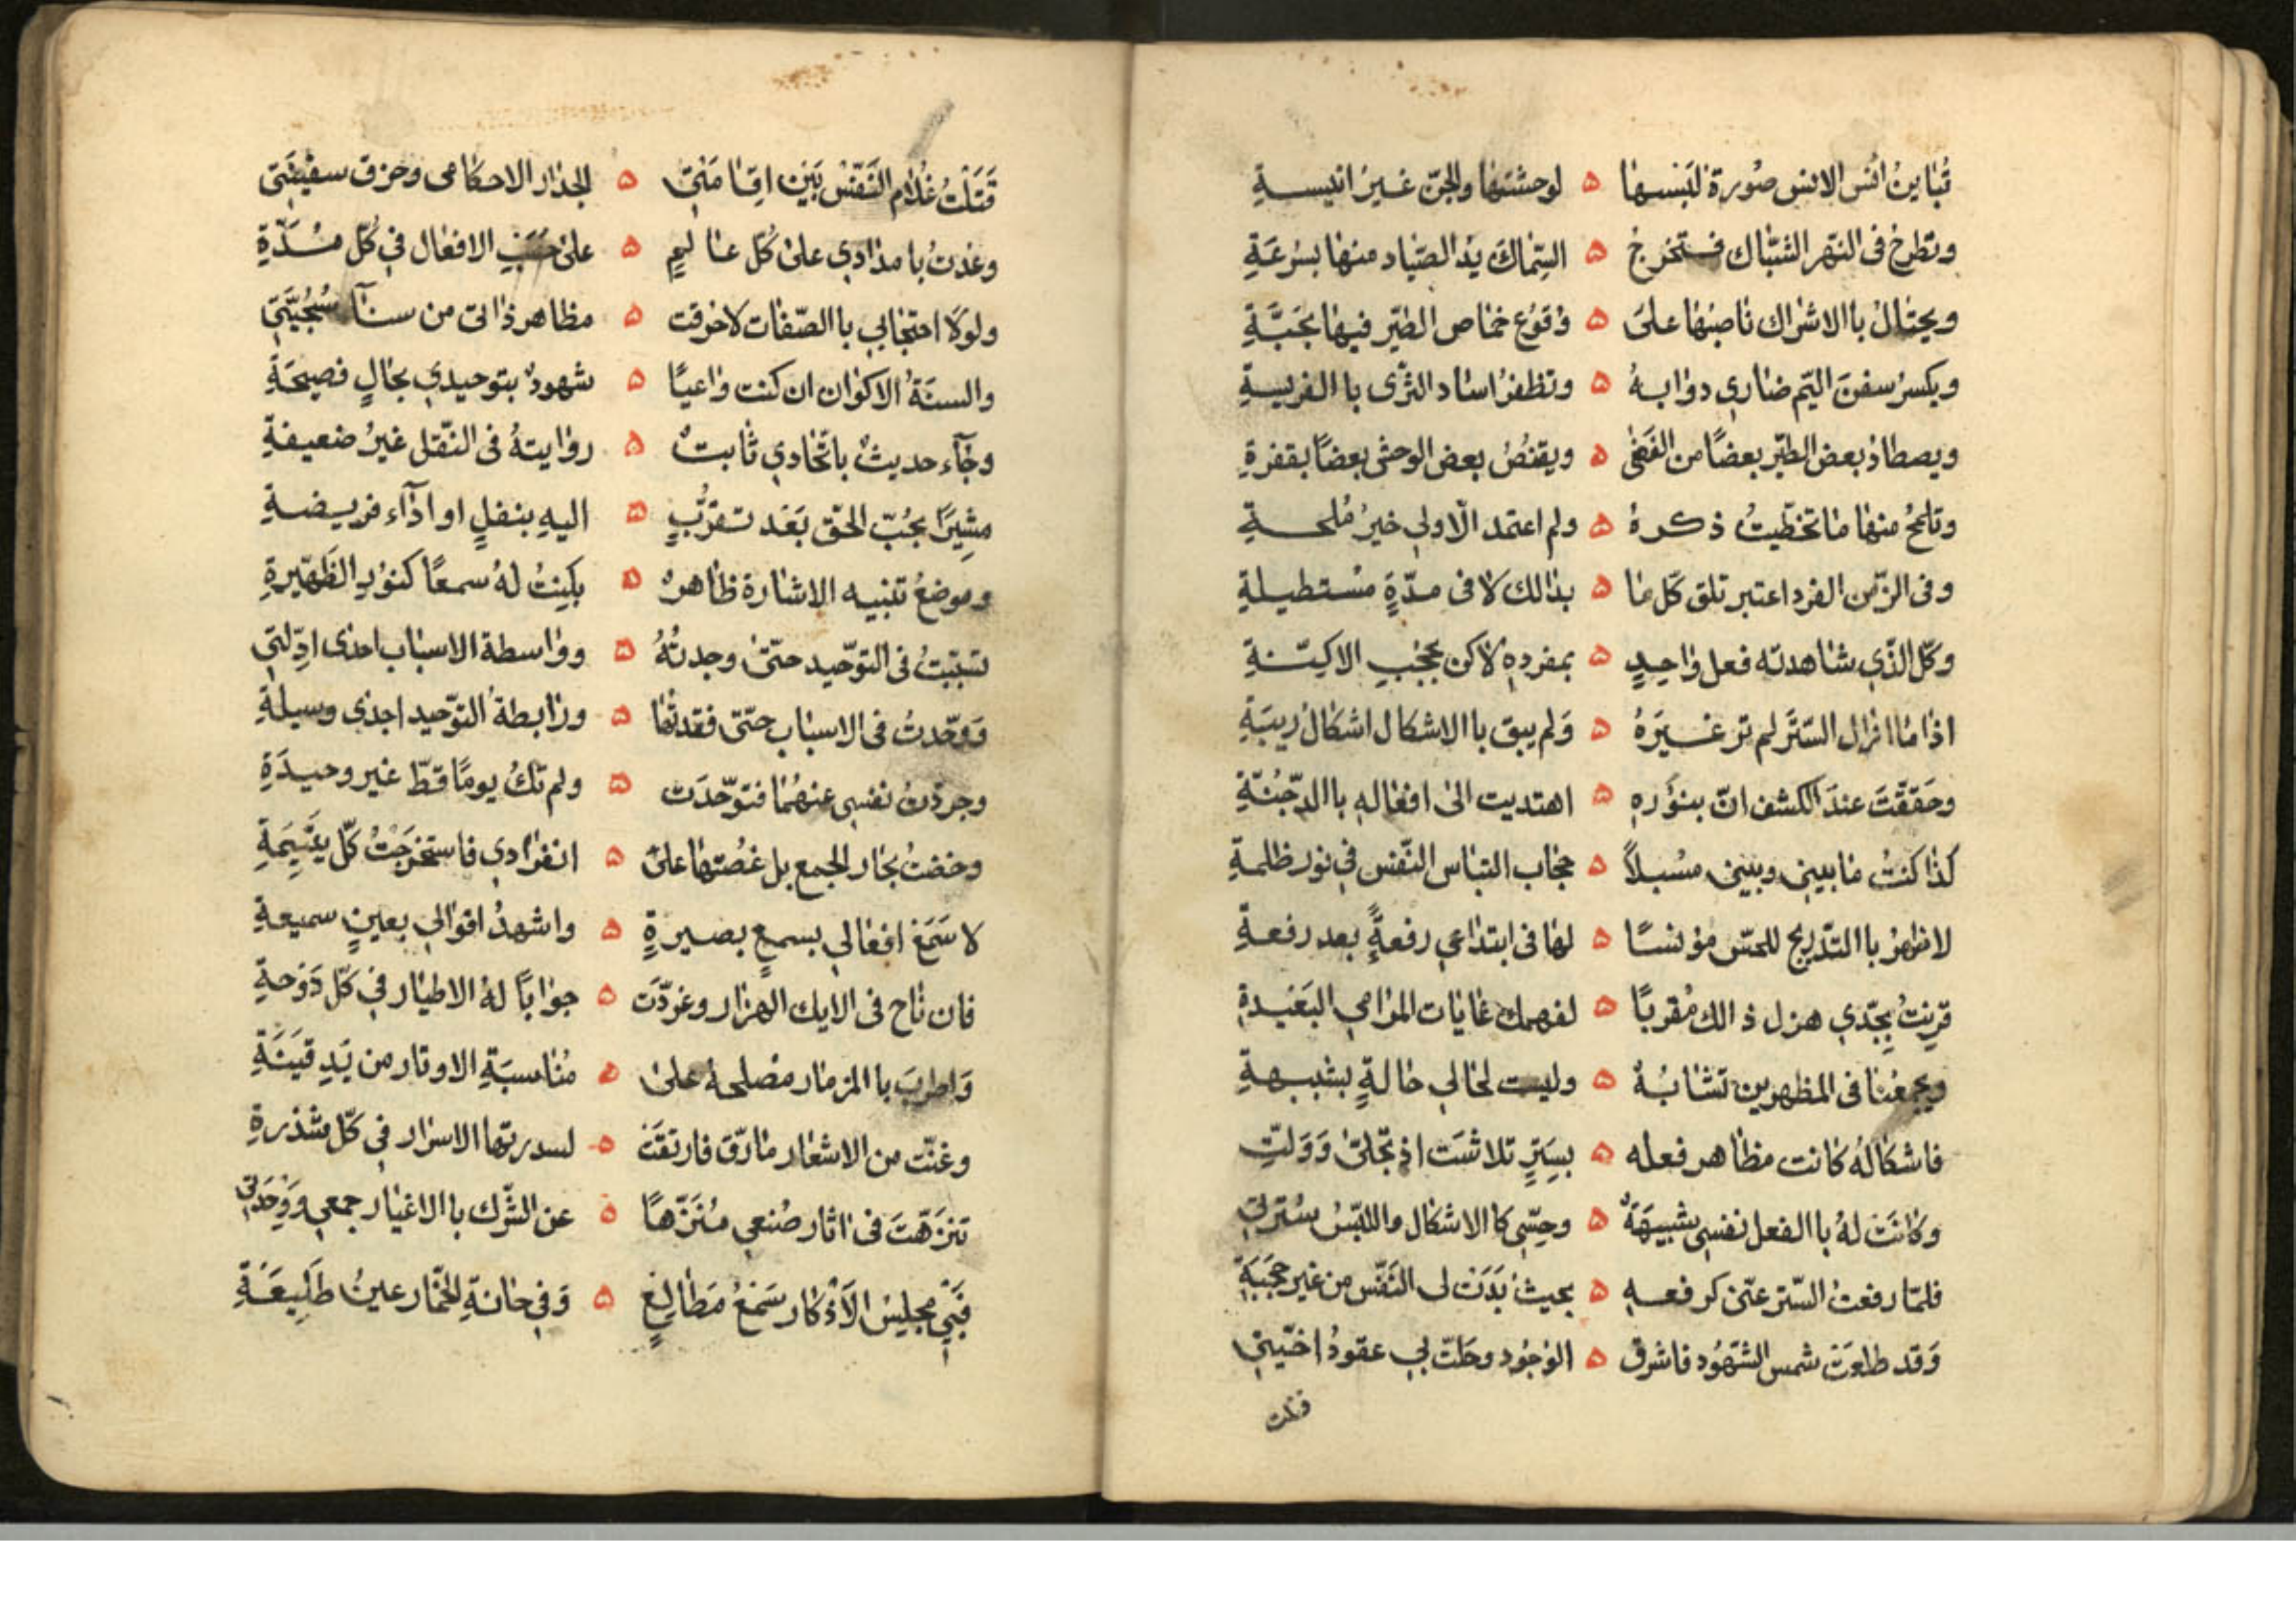 تُباينُ اُنس الانس صُورة لبَسها ه لوحشتها والجنّ غير انيسةِ
وتطرح فى النهر الشبّاك فتخرجُ ه السّماكَ يدُ الصّياد منها بسُرعَةِ
ويحتالُ باالاشراك ناصبُها على ه وُقوُع خماص الطيّر فيها بحَبَّةِ
ويكسرُ سفنَ اليمّ ضاري دوابهُ ه وتظفرُ اساد الثرى باالفريسةِ
ويصطادُ بعض الطيّر بعضًا من الفَضٰى ه ويقنصُ بعض الوحش بعضًا بقفرةِ
وتلمحُ منها ما تخطّيتُ ذكرهُ ه ولم اعتمد الّا ولي خيرُ مُلحةِ
وفى الزّمن الفرد اعتبر تلق كلّ ما ه بدالك لا فى مدّةٍ مستطيلةِ
وكلّ الذّي شاهدته فعل واحِدٍ ه بمفردهِ لاكن بحجُبِ الاكِنّةِ
اذا ما ازال السّترَ لم تر غيرَهُ ه وَلم يبق باالاشكال اشكالُ ريبَةِ
وحَققَّتَ عندَ الكشف انّ بنوُرهِ ه اهتديت الى افعالهِ باالدجُنّةِ
كذا كنتُ ما بيني وبيني مسُبلاً ه حجاب التباس النّفس في نور ظلمةِ
لاظهرُ باالتّدريج للحسّ مؤنسًا ه لها فى ابتداعي رفعةً بعد رفعةِ
قرنتُ بجِدّي هزل ذالك مُقربًا ه لفهمك غايات المرامي البَعيدةِ
ويجمعُنا فى المظهرين تشابُهٌ ه وليست لحالي حالةٍ بشبيهةِ
فاشكالهُ كانت مظاهر فعله ه بسِترٍ تلاشَت اذ تجّلىٰ وَوَلتِّ
وكانَت لهُ باالفعل نفسي شبيهَةٌ ه وحِسّي كاالاشكال واللبّسُ سُترتي
فلمّا رفعتُ السّتر عنّي كرفعهِ ه بحيث بَدَت لي النّفس من غير حجبَةِ
وَقد طلعَت شمس الشهُود فاشرق ه الوجُود وحَلتّ بي عقودُ اخيّتي
قتلت
قَتَلْتُ غُلام النّفسُ بَيْن اِقامَتي ه الجدار لاحكامي وخرق سفينَتي
وعُدتُ بامدادي على كُلّ عالمٍ ه على حَسَبِ الافعال في كُلّ مُدّةِ
ولولَا احتجابي باالصّفات لاحرقت ه مظاهر ذاتى من سنآ سُجُيَّتي
والسنَةُ الاكوان ان كنت واعيًا ه شهودٌ بتوحيدي بحالٍ فصيحَةِ
وجآء حديثٌ باتّحادي ثابتٌ ه روايتهُ فى النّقل غيرُ ضعيفةِ
مشِيرًا بحُبّ الحقّ بَعَد تقرُّبٍ ه اليهِ بنفلٍ او ادآء فريضةِ
وموضعُ تنبيه الاشارة ظاهرٌ ه بكِنتُ لهُ سمعًا كنوُرِ الظّهيرةِ
تسبّبتُ فى التوّحيد حتىّ وجدتُهُ ه وواسطة الاسباب احدى ادِّلتي
وَوحّدتُ فى الاسباب حتّى فقدتُها ه ورابطة التوّحيد اجدى وسيلةِ
وجردتُ نفسي عنهُما فتوّحّدَت ه ولم تكُ يومًا قطّ غير وحيدَةِ
وخضتُ بحار الجمع بل غصُتها على ه انفرادي فاستخرَجْتُ كلّ يتيمَةِ
لاسَمَعَ افعالي بسمعٍ بصيرةٍ ه واشهدُ اقوالي بعينٍ سميعةِ
فان ناح فى الايك الهزار وغرّدَت ه جوابًا لهُ الاطيار في كلّ دَوْحةِ
وَاطربَ باالمزمار مصُلحهُ على ه مُناسبَةِ الاوتار من يَدِ قَينَةِ
وغنّت من الاشعار مارَقّ فارتقَت ه لسدرتها الاسرار في كلّ شدرةِ
تنَزّهتَ فى اثار صُنعي مُنَزّهًا ه عن الشّرك باالاغيار جمعي ووَحدَتي
فَبِي مجلِسُ الاَذكار سَمَعُ مَطالعٍ ه وَفي حانةِ الخمّار عينُ طَلِيعَةِ